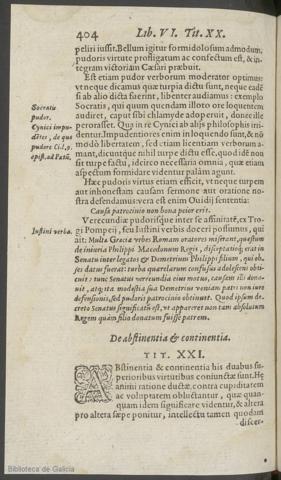 404 Lib. VI. Tit. XX.
peliri iussit. Bellum igitur formidolosum admodum,
pudoris virtute profligatum ac confectum est, & in-
tegram victoriam Cæsari præbuit.
Est etiam pudor verborum moderator optimus:
vt neque dicamus quæ turpia dictu sunt, neque eadē
si ab alio dicta fuerint, libenter audiamus: exemplo
Socratis
pudor.
Socratis, qui quum quendam illoto ore loquentem
audiret, caput sibi chlamyde adoperuit, donec ille
Cynici impu-
dētes, de quo
pudore Ci.l.9.
epist. ad Patū.
perorasset. Quę in re Cynici ab alijs philosophis irri-
dentur. Impudentiores enim in loquendo sunt, & nō
modò libertatem, sed etiam licentiam verborum a-
mant, dicuntque nihil turpe dictu esse, quod idē non
sit turpe factu, ideirco necessaria omnia, quæ etiam
aspectum formidare videntur palàm agunt.
Hæc pudoris virtus etiam efficit, vt neque turpem
aut inhonestam causam sermone aut oratione no-
stra defendamus: vera est enim Ouidij sententia:
Causa patrocinio non bona peior erit.
Verecundiæ pudorisque inter se affinitatē, ex Tro-
Iustini verba.
gi Pompeij, seu Iustini verbis doceri possumus, qui
ait: Multæ Græciæ vrbes Romam oratores miserant, quæstum
de iniuria Philippi Macedonum Regis, disceptatioq; erat in
Senatu inter legatos & Demetrium Philippi filium, qui ob.
ses datus fuerat: turba querelarum confusus adolescens obti-
cuit: tunc Senatus verecundia eius motus, causam illi dona-
uit, atq; ita modestia sua Demetrius veniam patri non iure
defensionis, sed pudoris patrocinio obtinuit. Quod ipsum de-
creto Senatus significatū est, vt appareret non tam absolutum
Regem quàm filio donatum fuisse patrem.
De abstinentia & continentia.
TIT. XXI.
ABstinentia & continentia his duabus su-
perioribus virtutibus coniunctæ sunt. Hę
animi ratione ductæ, contra cupiditatem
ac voluptatem obluctantur, quæ quan-
quam idem significare videntur, & altera
pro altera sæpe ponitur, intellectu tamen quodam
discer-
Biblioteca de Galicia